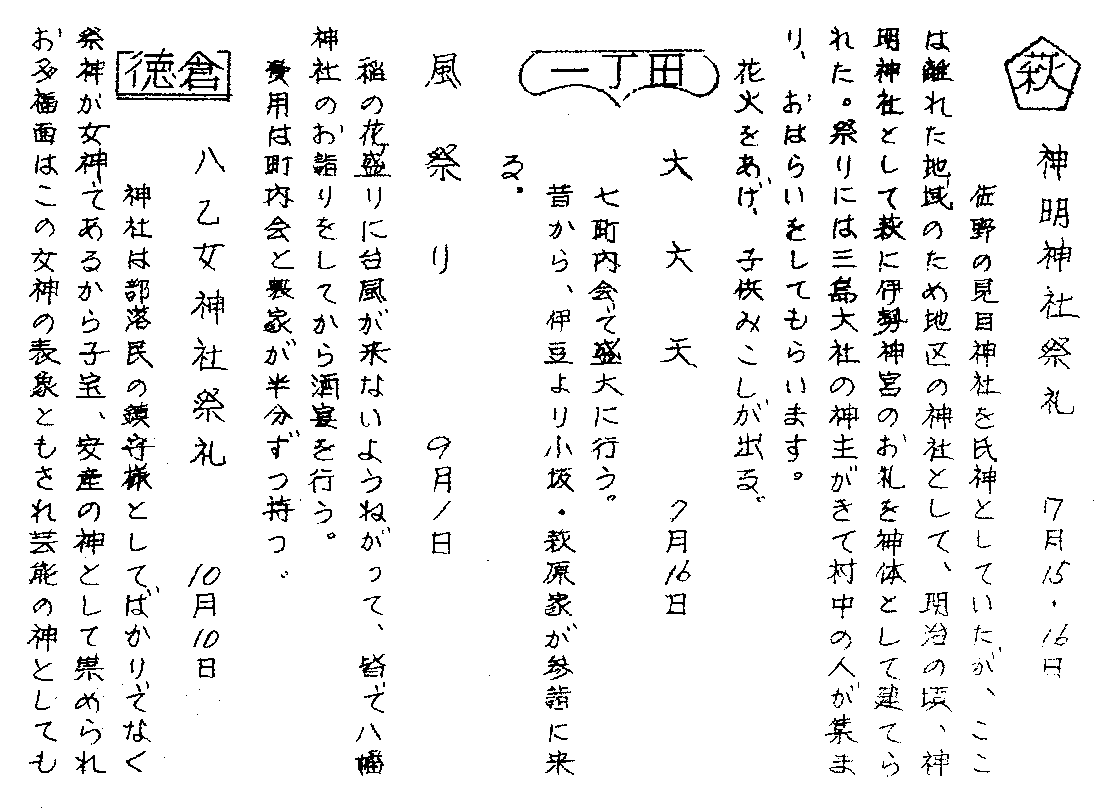 萩
神明神社祭礼 7月15・16日
佐野の見目神社を氏神としていたが、ここ
は離れた地域のため地区の神社として、明治の頃、神
明神社として萩に伊勢神宮のお礼を神体として建てら
れた。祭りには三島大社の神主がきて村中の人が集ま
り、おはらいをしてもらいます。
花火をあげ、子供みこしが出る。
一丁田
大大天 7月16日
七町内会で盛大に行う。
昔から、伊豆より小坂・萩原家が参詣に来
る。
風祭り 9月1日
稲の花盛りに台風が来ないようねがって、皆で八幡
神社のお詣りをしてから酒宴を行う。
費用は町内会と農家が半分ずつ持つ。
徳倉
八乙女神社祭礼 10月10日
神社は部落民の鎮守様としてばかりでなく
祭神が女神であるから子宝、安産の神として崇められ
お多福面はこの女神の表象ともされ芸能の神としても